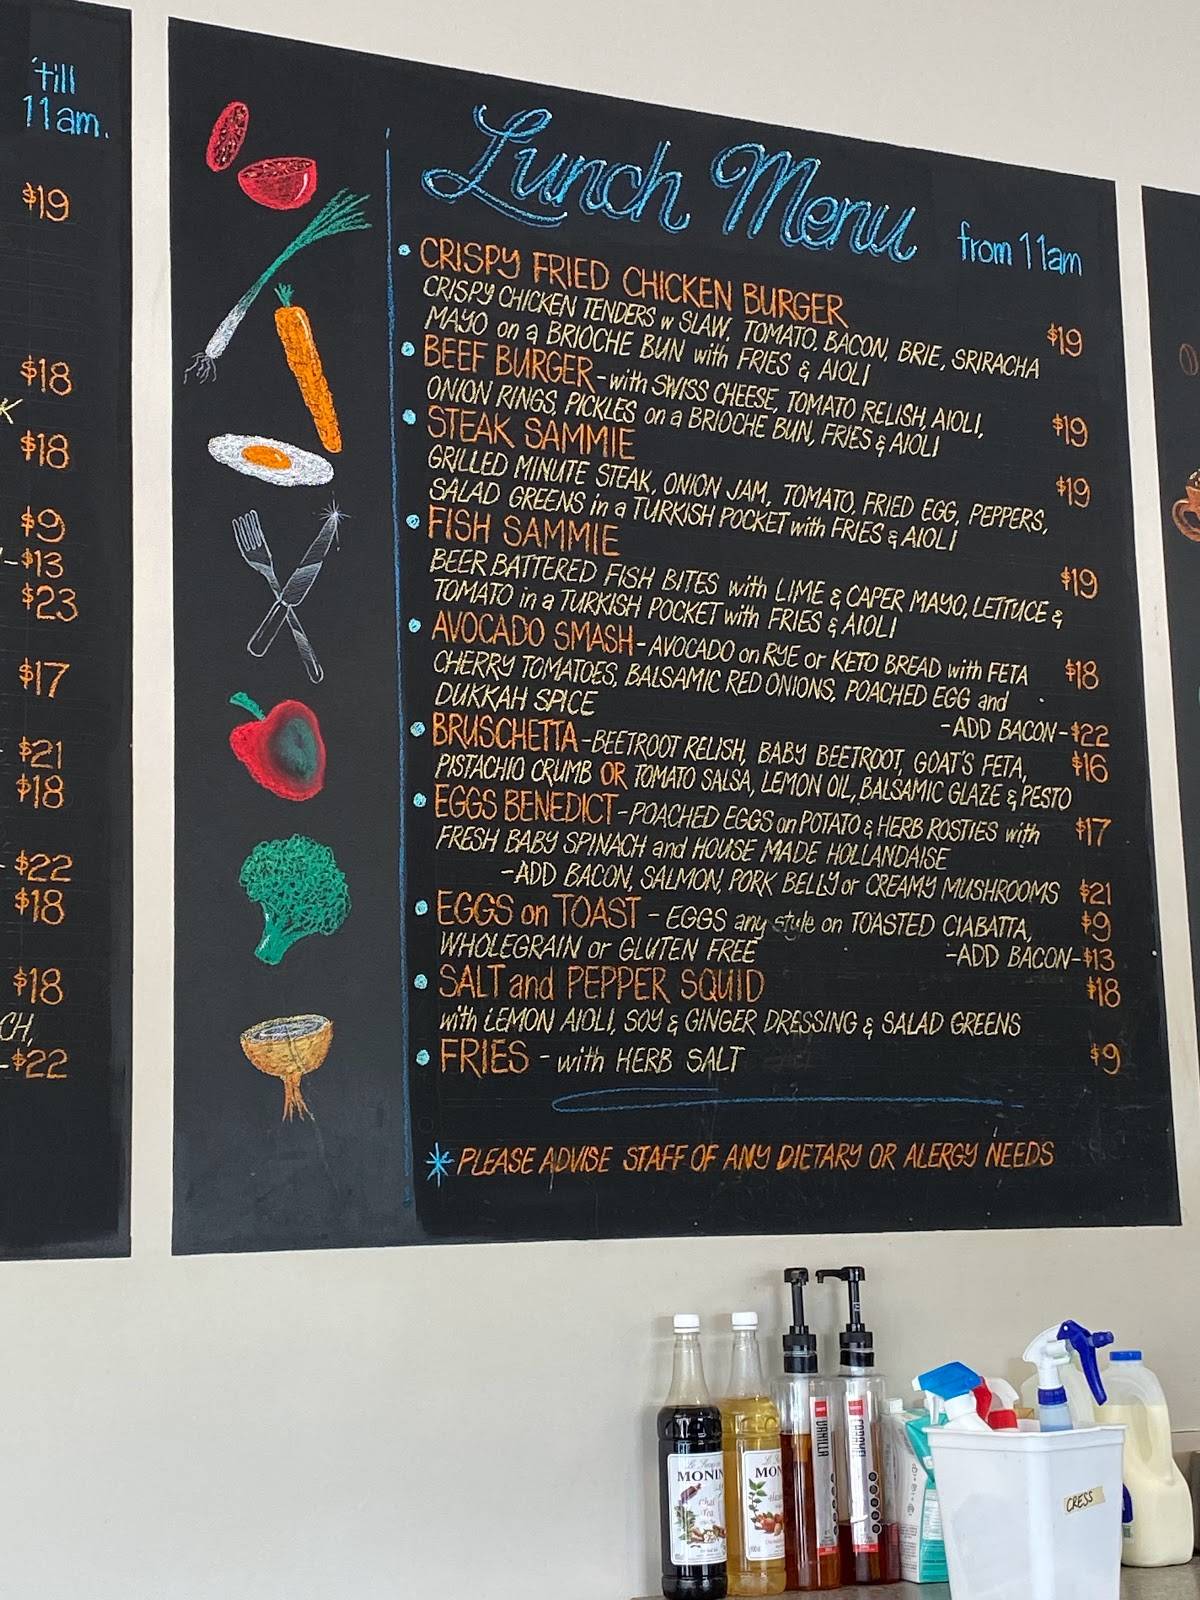 'till
11am.
$19
$18
K
$18
$9
-$13
$23
$17
$21
$18
-$22
$18
$18
CH,
-$22
Lunch Menu from 11am
CRISPY FRIED CHICKEN BURGER
CRISPY CHICKEN TENDERS w SLAW, TOMATO, BACON, BRIE, SRIRACHA $19
MAYO on a BRIOCHE BUN with FRIES & AIOLI
BEEF BURGER - with SWISS CHEESE, TOMATO RELISH, AIOLI, $19
ONION RINGS, PICKLES on a BRIOCHE BUN, FRIES & AIOLI
STEAK SAMMIE $19
GRILLED MINUTE STEAK, ONION JAM, TOMATO, FRIED EGG, PEPPERS,
SALAD GREENS in a TURKISH POCKET with FRIES & AIOLI
FISH SAMMIE $19
BEER BATTERED FISH BITES with LIME & CAPER MAYO, LETTUCE &
TOMATO in a TURKISH POCKET with FRIES & AIOLI
AVOCADO SMASH - AVOCADO on RYE or KETO BREAD with FETA $18
CHERRY TOMATOES, BALSAMIC RED ONIONS, POACHED EGG and
DUKKAH SPICE -ADD BACON-$22
BRUSCHETTA - BEETROOT RELISH, BABY BEETROOT, GOAT'S FETA, $16
PISTACHIO CRUMB OR TOMATO SALSA, LEMON OIL, BALSAMIC GLAZE & PESTO
EGGS BENEDICT - POACHED EGGS on POTATO & HERB ROSTIES with $17
FRESH BABY SPINACH and HOUSE MADE HOLLANDAISE
-ADD BACON, SALMON, PORK BELLY or CREAMY MUSHROOMS $21
EGGS on TOAST - EGGS any style on TOASTED CIABATTA, $9
WHOLEGRAIN or GLUTEN FREE -ADD BACON-$13
SALT and PEPPER SQUID $18
with LEMON AIOLI, SOY & GINGER DRESSING & SALAD GREENS
FRIES - with HERB SALT $9
* PLEASE ADVISE STAFF OF ANY DIETARY OR ALERGY NEEDS
MONIN
Chai
Tea
MON
VANILLA
CARAMEL
CRESS